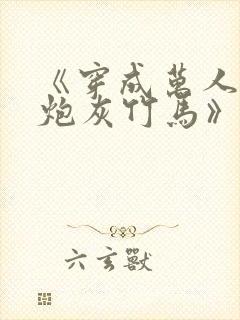 《穿成萬人
炮灰竹馬》
六玄獸